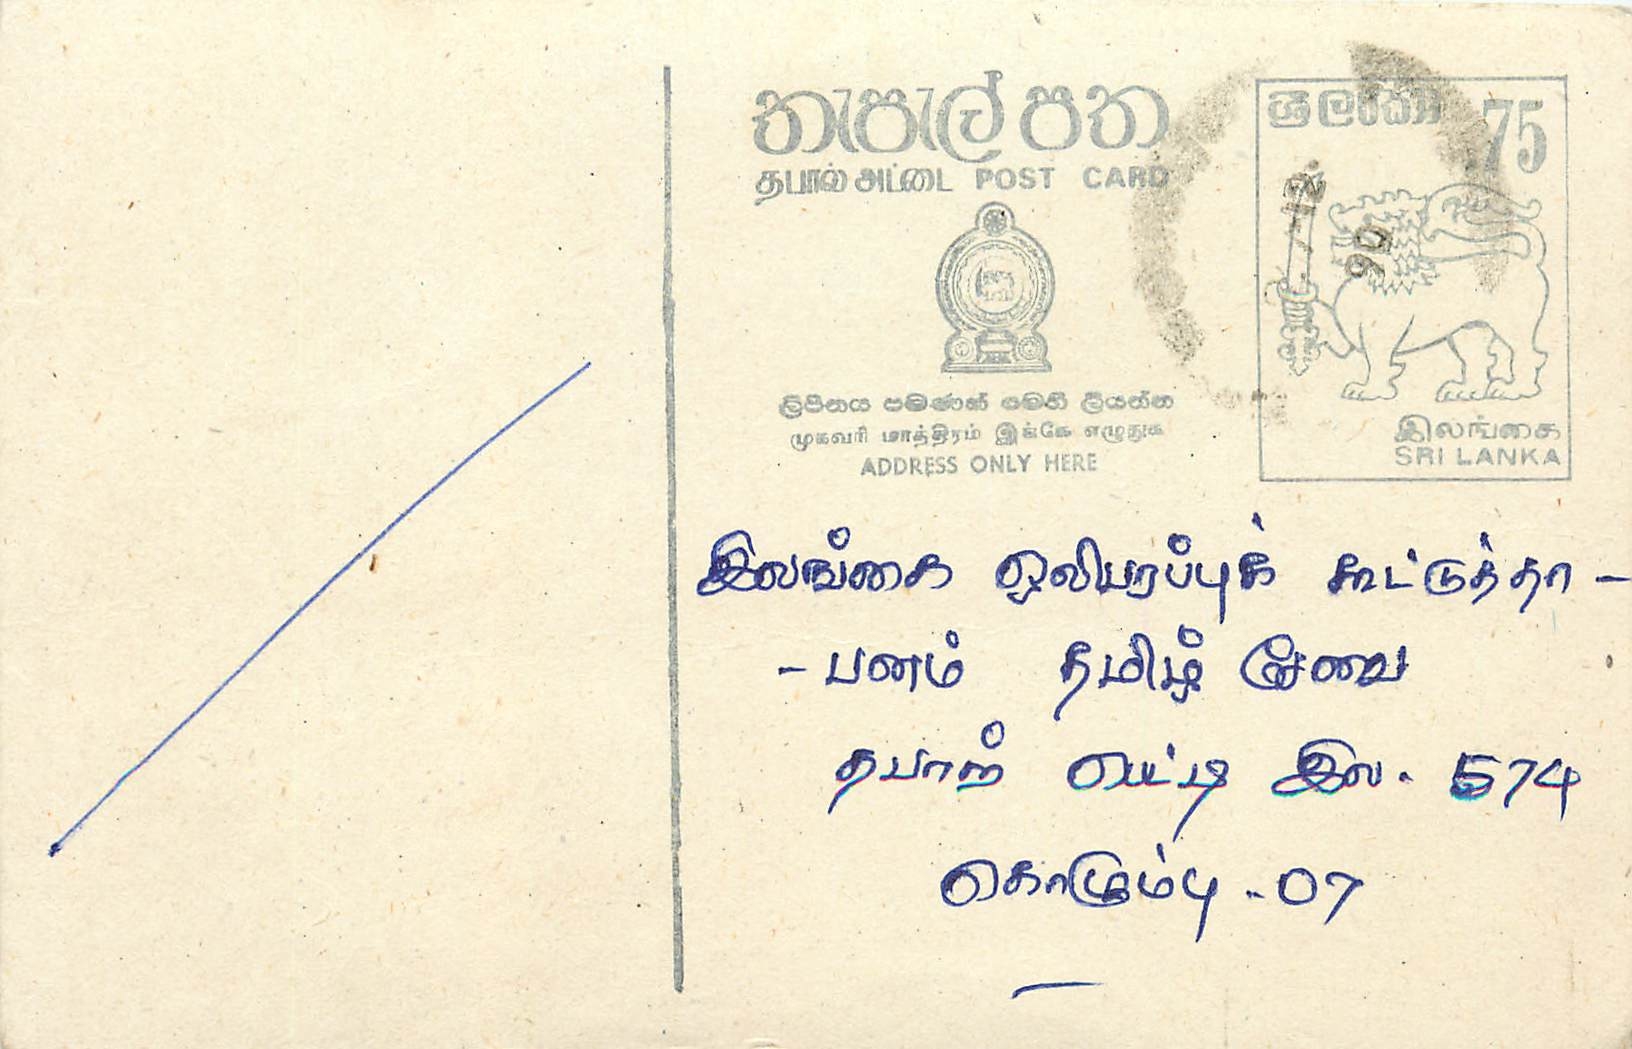 තැපැල් පත
தபால் அட்டை POST CARD
ශ්‍රී ලංකා 75
12
90
ලිපිනය පමණක් මෙහි ලියන්න
முகவரி மாத்திரம் இங்கே எழுதுக
ADDRESS ONLY HERE
இலங்கை
SRI LANKA
இலங்கை ஒலிபரப்புக் கூட்டுத்தா -
- பனம் தமிழ் சேவை
தபாற் பெட்டி இல. 574
கொழும்பு - 07